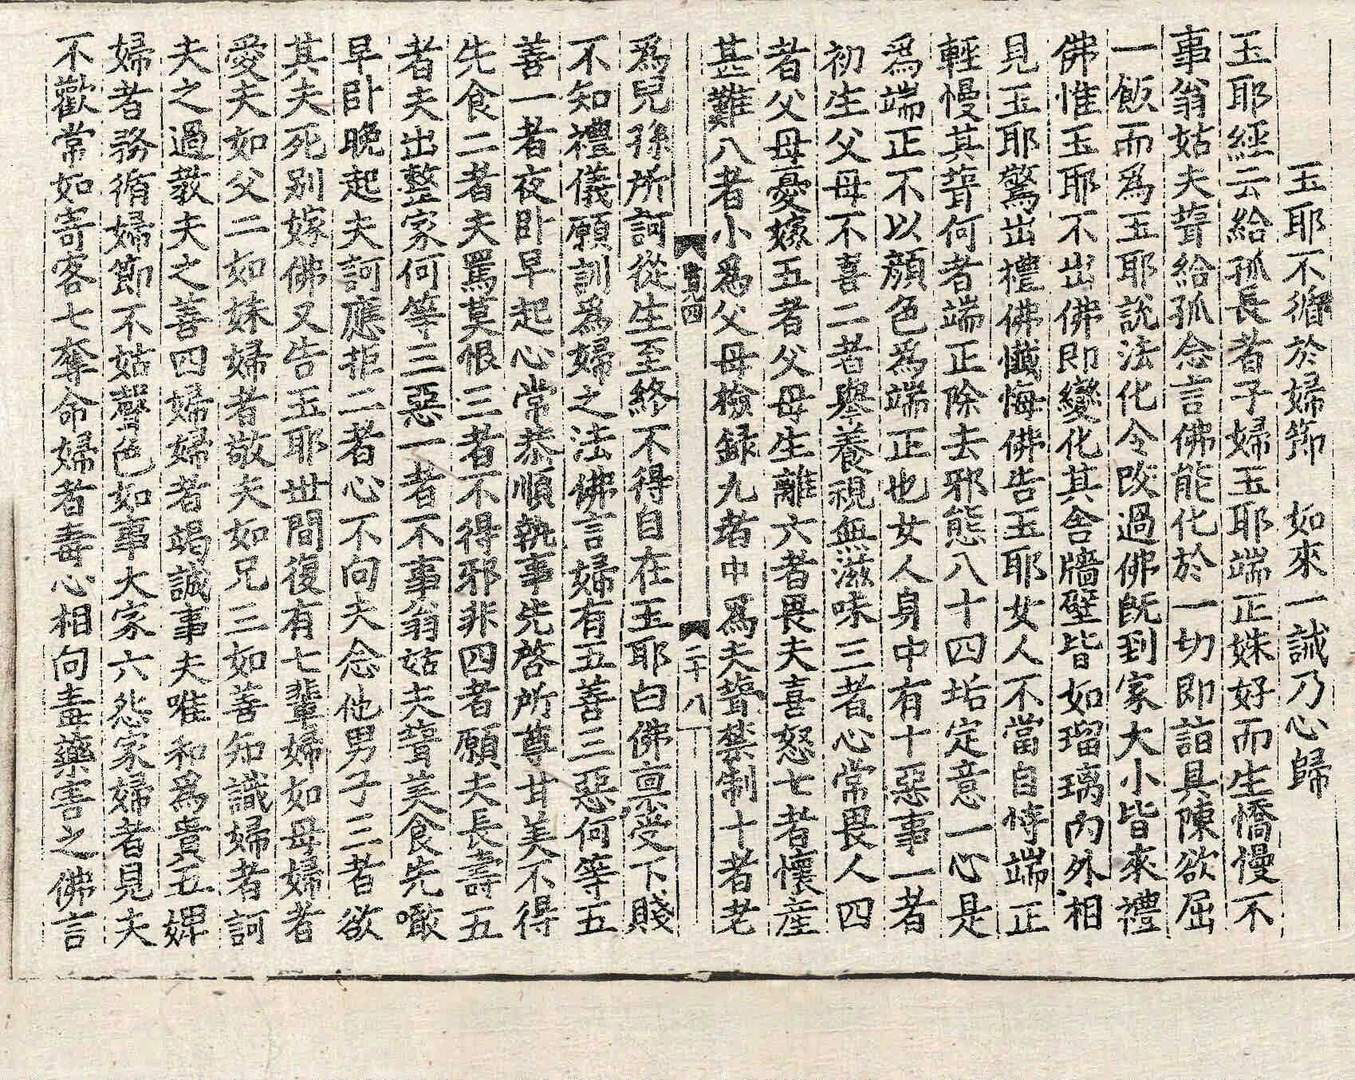 玉耶不循於婦節　如來一誡乃心歸
玉耶經云給孤長者子婦玉耶端正姝好而生憍慢不
事翁姑夫壻給孤念言佛能化於一切即詣具陳欲屈
一飯而爲玉耶說法化令改過佛旣到家大小皆來禮
佛惟玉耶不出佛即變化其舍牆壁皆如瑠璃內外相
見玉耶驚出禮佛懺悔佛告玉耶女人不當自恃端正
輕慢其壻何者端正除去邪態八十四垢定意一心是
爲端正不以顔色爲端正也女人身中有十惡事一者
初生父母不喜二者舉養視無滋味三者心常畏人四
者父母憂嫁五者父母生離六者畏夫喜怒七者懷産
甚難八者小爲父母撿録九者中爲夫壻禁制十者老
二十八
爲兒孫所訶從生至終不得自在玉耶白佛禀受下賤
不知禮儀願訓爲婦之法佛言婦有五善三惡何等五
善一者夜卧早起心常恭順執事先啓所尊甘美不得
先食二者夫罵莫恨三者不得邪非四者願夫長壽五
者夫出整家何等三惡一者不事翁姑夫壻美食先噉
早卧晚起夫訶應拒二者心不向夫念他男子三者欲
其夫死別嫁佛又告玉耶世間復有七輩婦如母婦者
愛夫如父二如妹婦者敬夫如兄三如善知識婦者訶
夫之過教夫之善四婦婦者竭誠事夫唯和爲貴五婢
婦者務循婦節不姑聲色如事大家六怨家婦者見夫
不歡常如寄客七奪命婦者毒心相向毒藥害之佛言